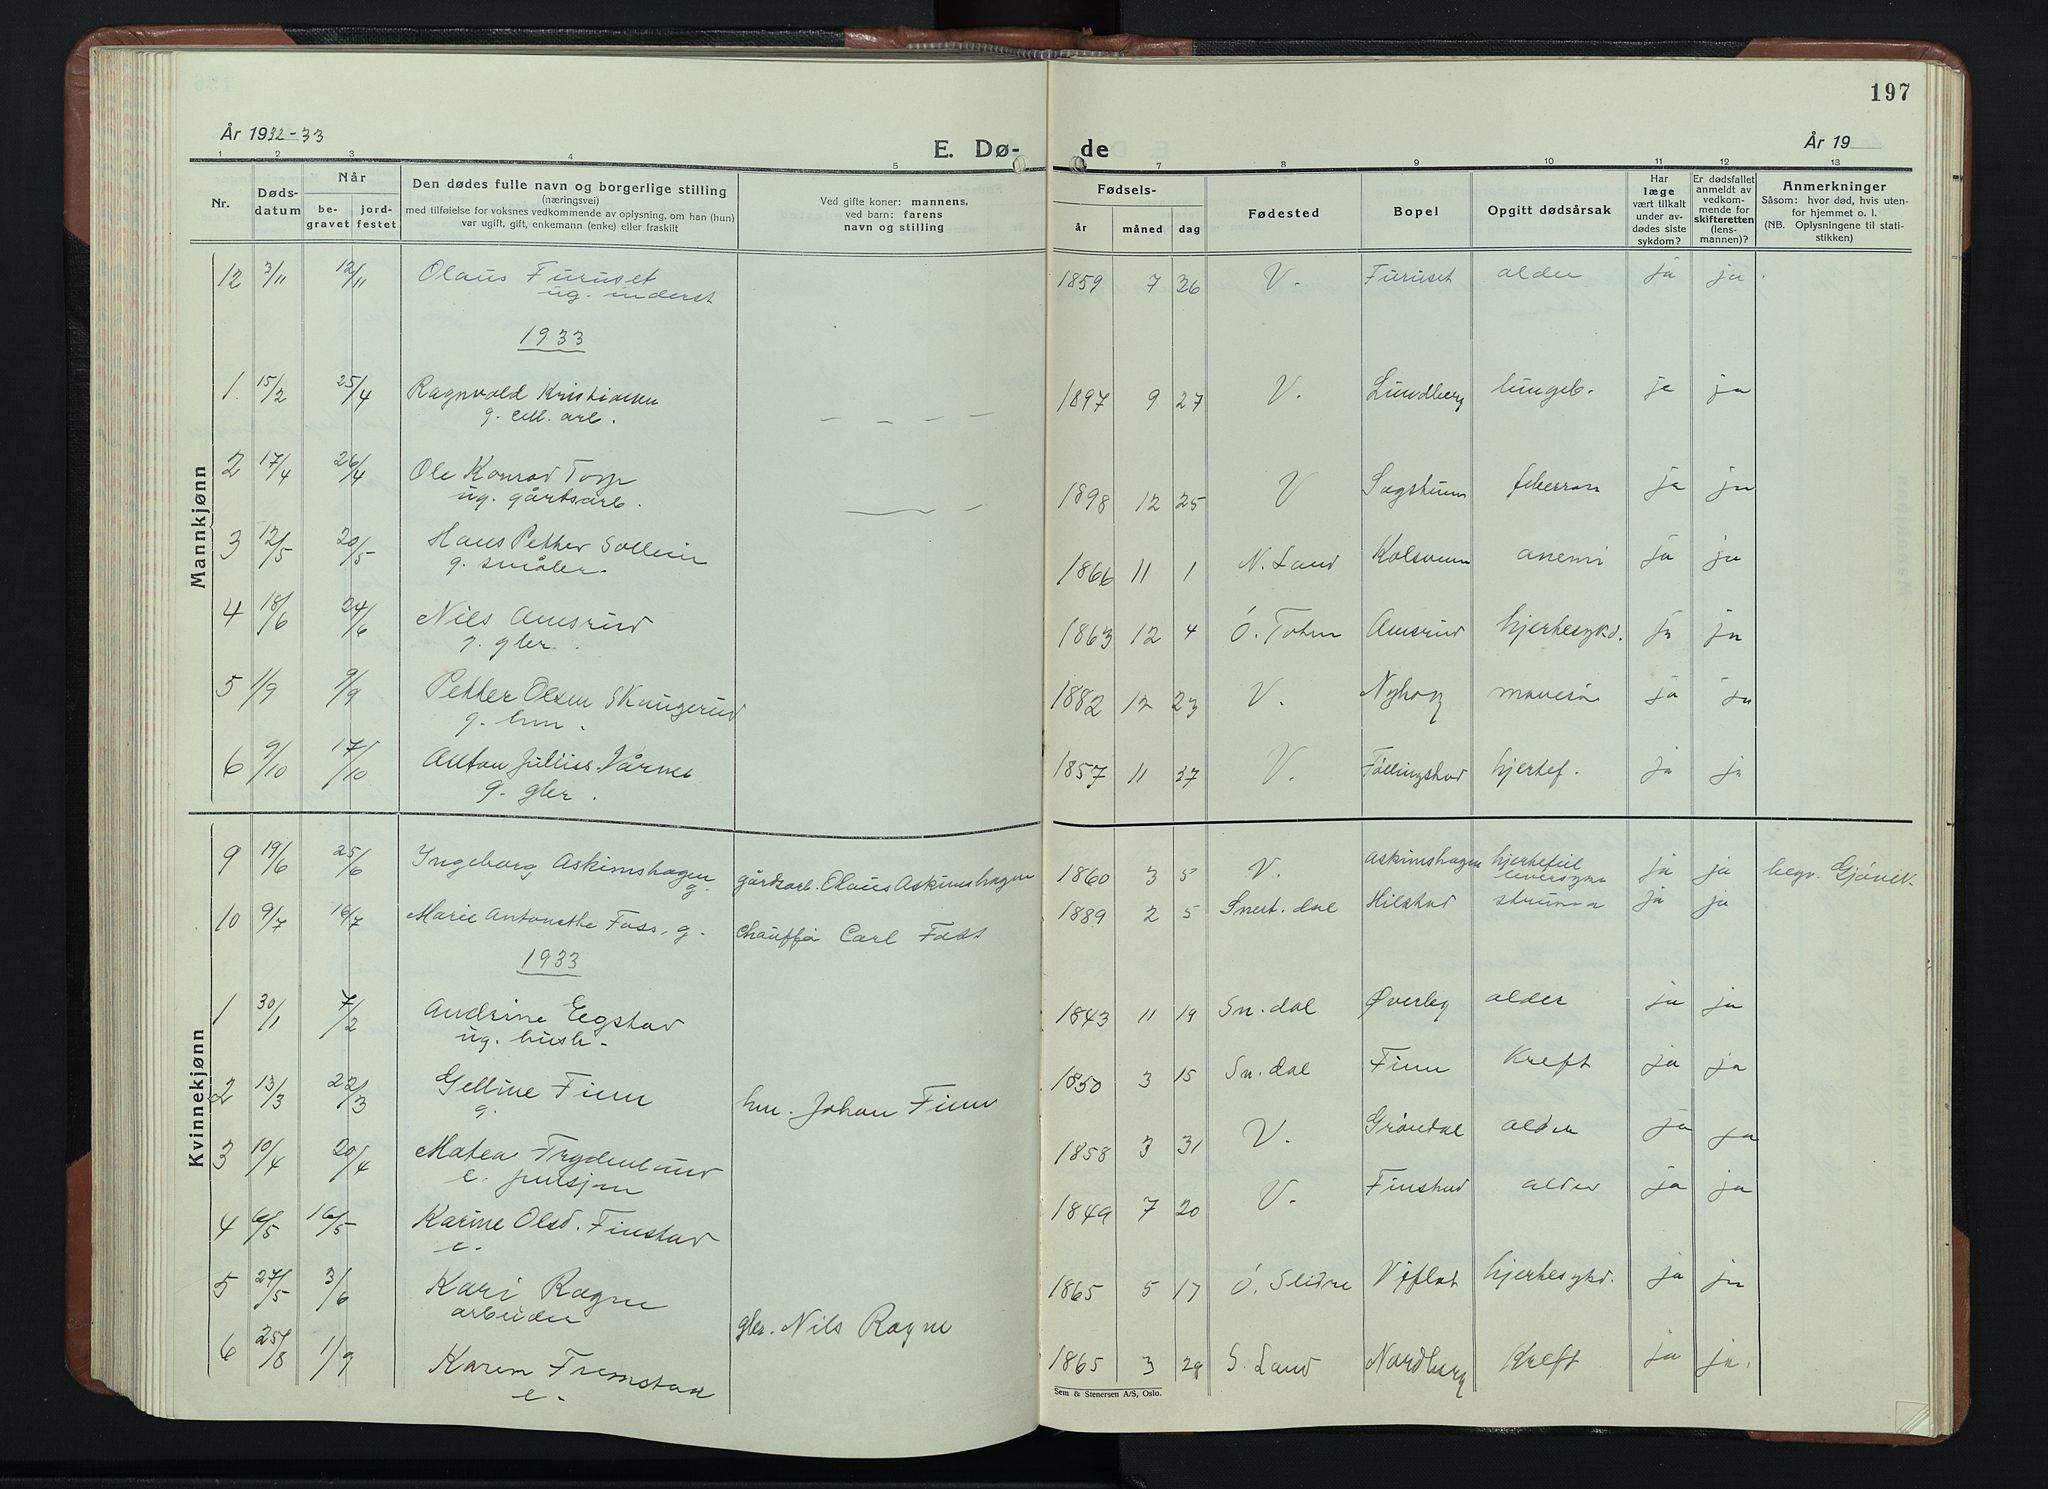 197
År 1932-33
E. Dø-
de
År 19
1 2 3 4 5 7 8 9 10 11 12 13
Nr.
Døds-
datum
Når
be-
gravet
jord-
festet
Den dødes fulle navn og borgerlige stilling
(næringsvei)
med tilføielse for voksnes vedkommende av oplysning, om han (hun)
var ugift, gift, enkemann (enke) eller fraskilt
Ved gifte koner: mannens,
ved barn: farens
navn og stilling
Fødsels-
år måned dag
Fødested
Bopel
Opgitt dødsårsak
Har
læge
vært tilkalt
under av-
dødes siste
sykdom?
Er dødsfallet
anmeldt av
vedkom-
mende for
skifteretten
(lens-
mannen)?
Anmerkninger
Såsom: hvor død, hvis uten-
for hjemmet o. l.
(NB. Oplysningene til stati-
stikken)
Mannkjønn
12 3/11 12/11 Olaus Furuset 1859 7 26 V. Furuset alder ja ja
ug. inderst
1933
1. 15/2 25/4 Ragnvald Kristiansen 1897 9 27 V. Lundberg lungeb. ja ja
g. cell. arb.
2 17/4 26/4 Ole Konrad Torp 1898 12 25 V ja ja
ug. gårdsarb.
3 12/5 20/5 Hans Petter Sollien 1866 11 1 N. Land anemi ja ja
g. småbr.
4 18/6 24/6 Nils Amsrud 1863 12 4 Ö. Toten Amsrud hjertesykd. ja ja
g. gbr.
5 1/9 9/9 Petter Olsen Skaugerud 1882 12 23 V. Nyhag ja ja
g. hm.
6 9/10 17/10 Anton Julius Vårnes 1857 11 27 V. Föllingstad hjertef. ja ja
g. gbr.
Kvinnekjønn
9 19/6 25/6 Ingeborg Askimshagen gårdsarb. Olaus Askimshagen 1860 3 5 V. Askimshagen hjertefeil ja ja begr. Gjövik.
g. leversyke
10 9/7 16/7 Marie Antonette Foss, g. Chauffør Carl Foss 1889 2 5 Snert.dal Hilstad struma ja ja
1933
1 30/1 7/2 Andrine Eegstad 1843 11 19 Sn.dal Øverby alder ja ja
ug. hush.
2 13/3 22/3 Gelline Finn hm. Johan Finn 1850 3 15 Sn.dal Finn Kreft ja ja
g.
3 10/4 20/4 Matea Frydenlund 1858 3 31 V. Grøndal alder ja ja
e. pensjon
4 6/5 16/5 Karine Olsd. Finstad 1849 7 20 V. Finstad alder ja ja
e.
5 27/5 3/6 Kari Ragne gbr. Nils Ragne 1865 5 17 Ö. Slidre Viflat hjertesykd. ja ja
arbeider
6 25/8 1/9 Karen Fremstad 1865 3 29 S. Land Nordberg Kreft ja ja.
e.
Sem & Stenersen A/S, Oslo.